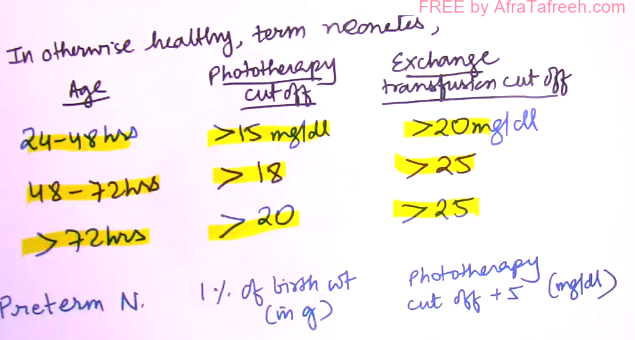 FREE by AfraTafreeh.com
In otherwise healthy, term neonates,
Age Phototherapy cut off Exchange transfusion cut off
24-48hrs >15 mg/dl >20mg/dl
48-72hrs >18 >25
>72hrs >20 >25
Preterm N. 1% of birth wt (in g) Phototherapy cut off +5 (mg/dl)